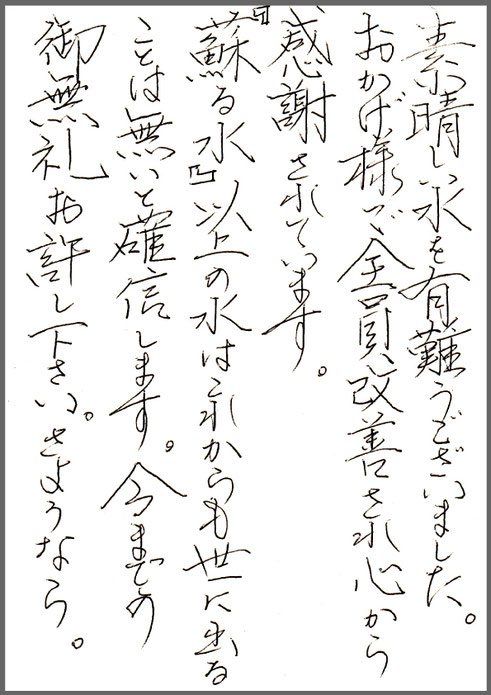 素晴しい水を有難うございました。
おかげ様で全員改善され心から
感謝されています。
『蘇る水』以上の水はこれからも世に出る
ことは無いと確信します。今までの
御無礼お許し下さい。さようなら。